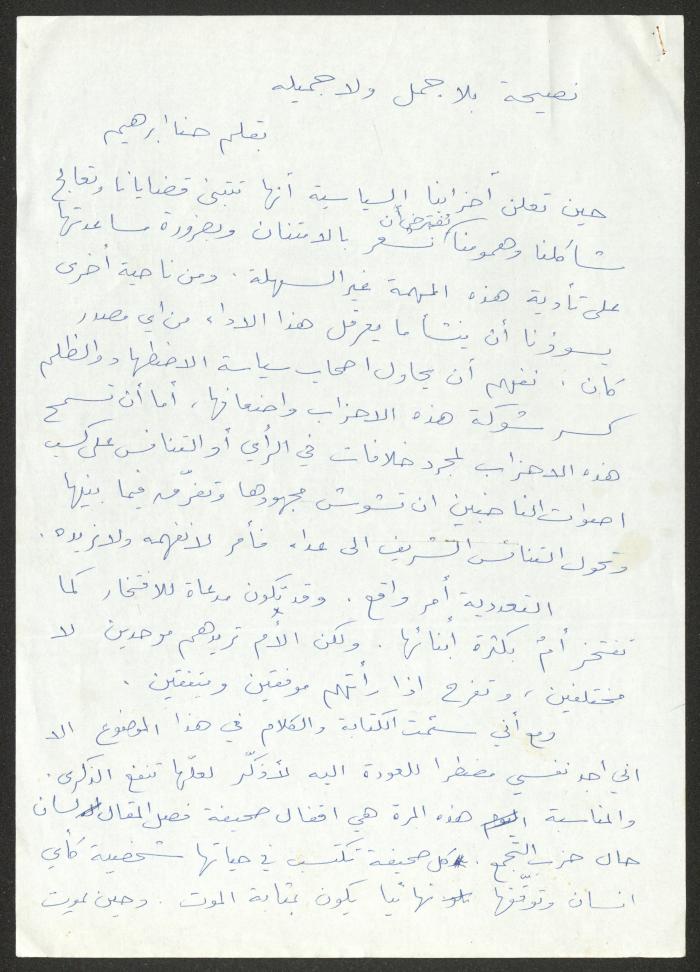 نصيحة بلا جمل ولا جميله
بقلم حنا ابرهيم
حين تعلن أحزابنا السياسية أنها تتبنى قضايانا وتعالج
مشاكلنا وهمومنا نفترض أن نشعر بالامتنان وبضرورة مساعدتها
على تأدية هذه المهمة غير السهلة . ومن ناحية أخرى
يسوؤنا أن ينشأ ما يعرقل هذا الاداء من أي مصدر
كان . نفهم أن يحاول اصحاب سياسة الاضطهاد والظلم
كسر شوكة هذه الاحزاب واضعافها ، أما أن تسمح
هذه الاحزاب لمجرد خلافات في الرأي أو التنافس على كسب
اصوات الناخبين ان تشوش مجهودها وتفرّق فيما بينها
وتحول التنافس الشريف الى عداء فأمر لا نفهمه ولا نريده .
التعددية أمر واقع . وقد تكون مدعاة للافتخار كما
تفتخر أمٌ بكثرة أبنائها . ولكن الأم تريدهم موحدين لا
مختلفين ، وتفرح اذا رأتهم موفقين ومتفقين .
ومع أني سئمت الكتابة والكلام في هذا الموضوع الا
اني اجد نفسي مضطرا للعودة اليه لأذكّر لعلّها تنفع الذكرى .
والمناسبة هذه المرة هي اقفال صحيفة فصل المقال لسان
حال حزب التجمع . كل صحيفة تكتسب في حياتها شخصية كأي
انسان وتوقّفها نهائيا يكون بمثابة الموت . وحين يموت